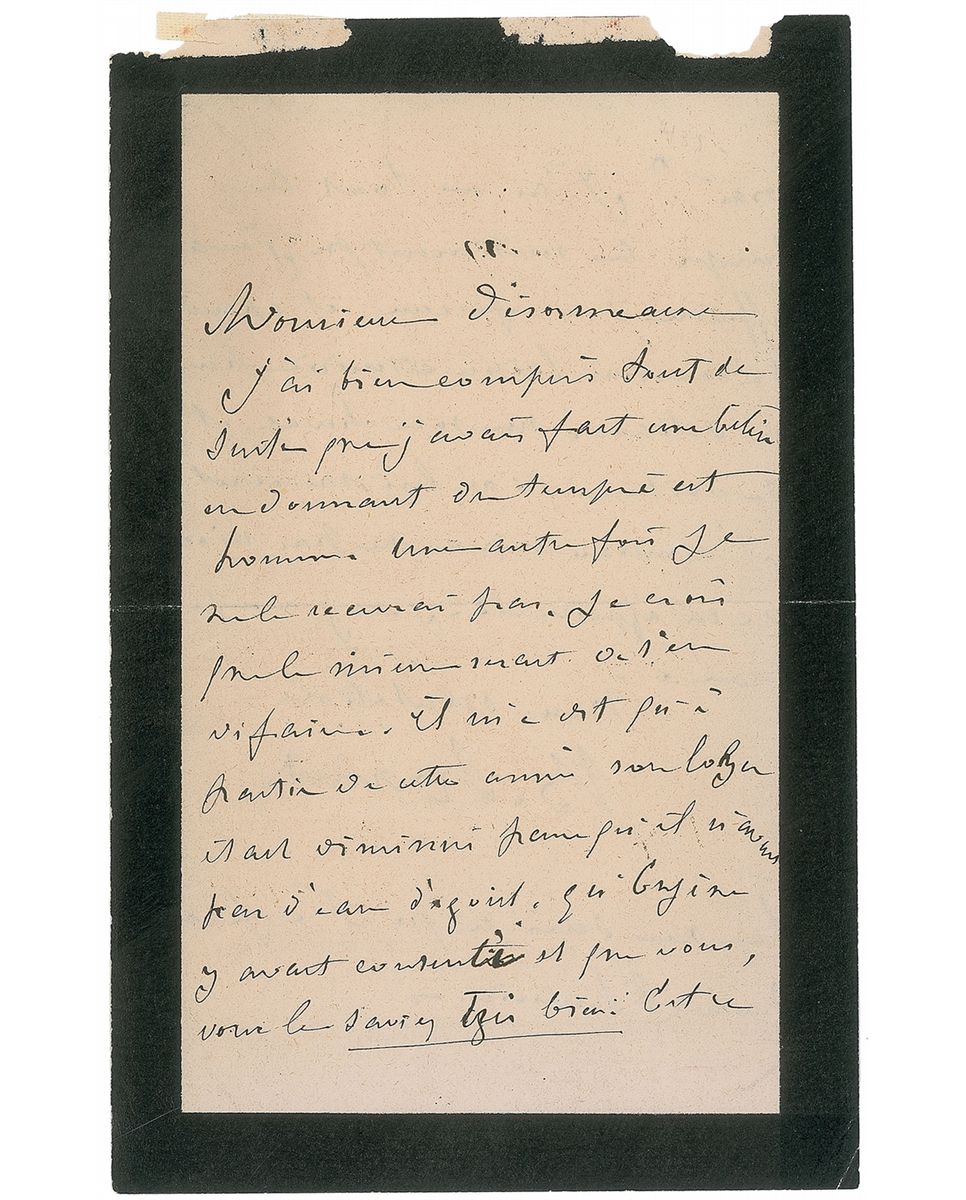 Monsieur Désormeaux
J'ai bien compris tout de
suite que j'avais fait une bêtise
en donnant du temps à cet
homme. Une autre fois je
ne le recevrai pas. Je crois
que le mieux serait de s'en
défaire. Il m'a dit qu'à
partir de cette année son loyer
était diminué parce qu'il n'avait
pas d'eau d'égout. qu'Eugène
y avait consenti et que vous,
vous le saviez très bien. Est ce